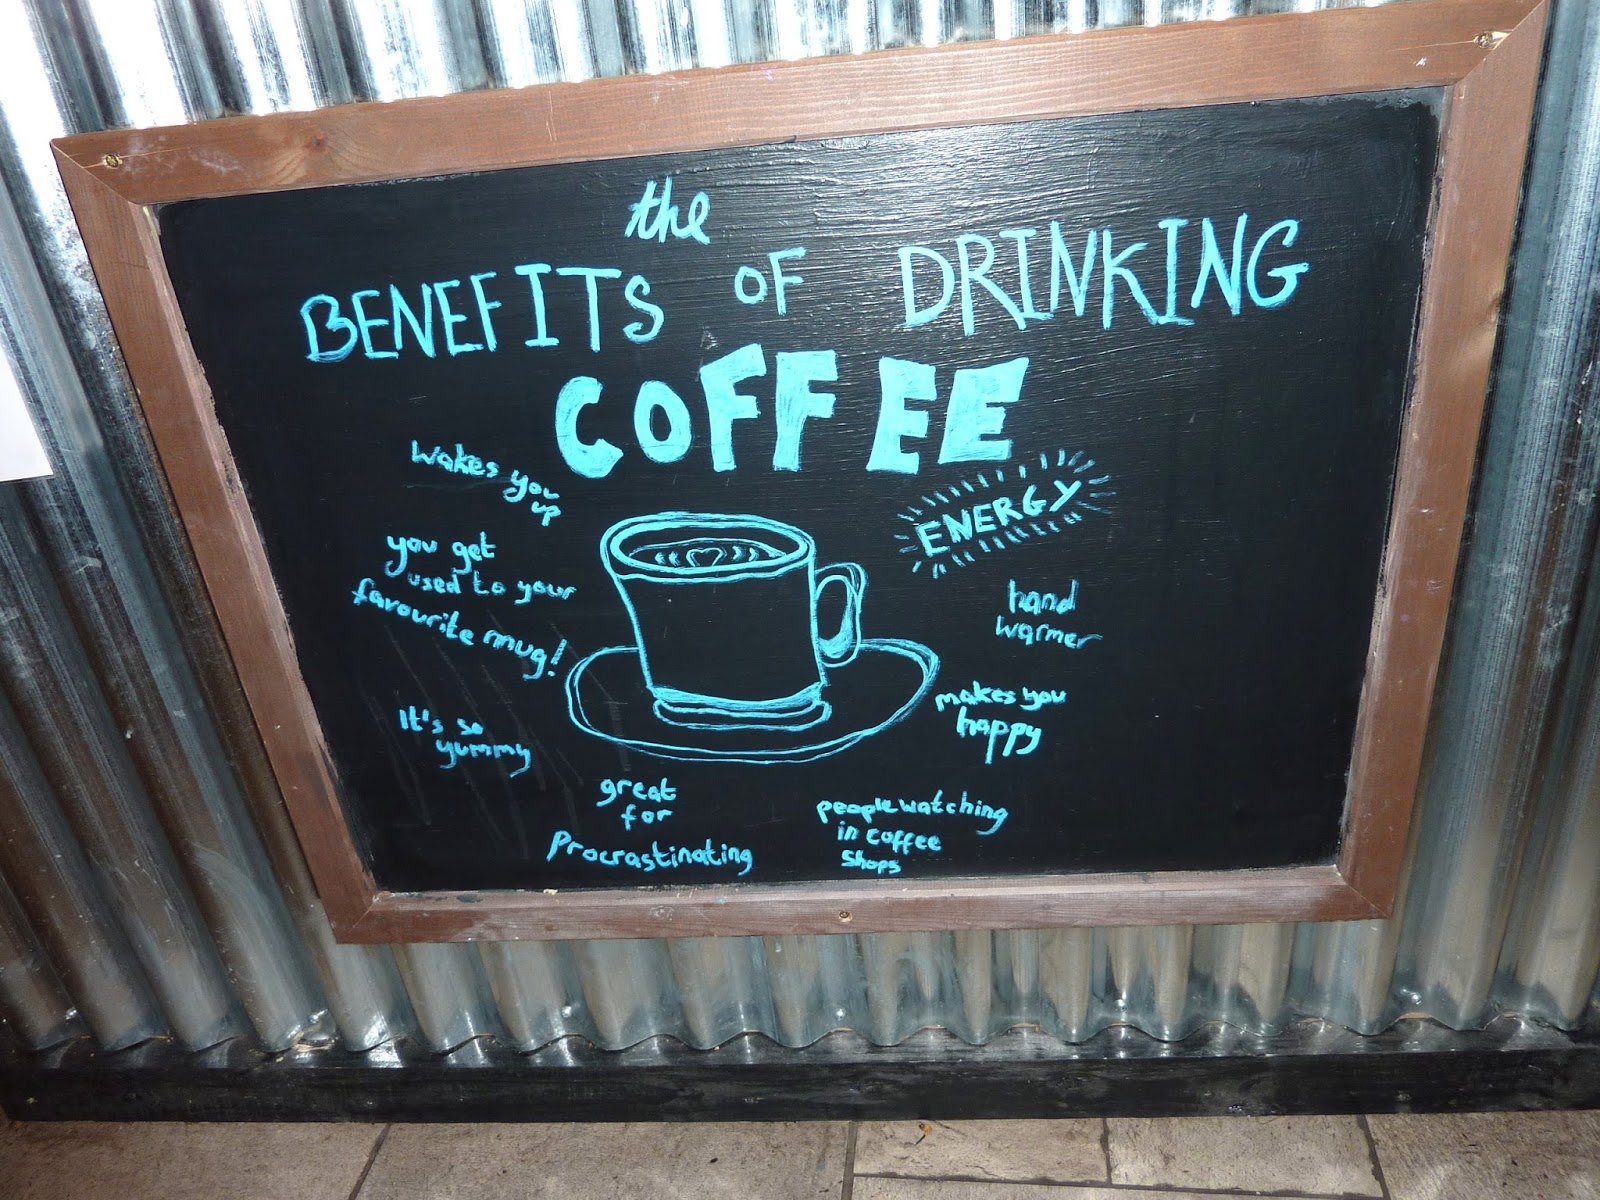 the
BENEFITS OF DRINKING
COFFEE
wakes you
up
ENERGY
you get
used to your
favourite mug!
hand
warmer
It's so
yummy
makes you
happy
great
for
Procrastinating
people watching
in coffee
shops